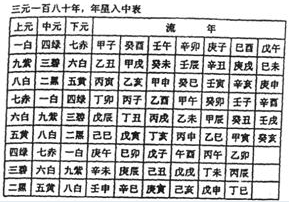 三元一百八十年，年星入中表
上元 中元 下元 流 年
一白 四绿 七赤 甲子 癸酉 壬午 辛卯 庚子 己酉 戊午
九紫 三碧 六白 乙丑 甲戌 癸未 壬辰 辛丑 庚戌 己未
八白 二黑 五黄 丙寅 乙亥 甲申 癸巳 壬寅 辛亥 庚申
七赤 一白 四绿 丁卯 丙子 乙酉 甲午 癸卯 壬子 辛酉
六白 九紫 三碧 戊辰 丁丑 丙戌 乙未 甲辰 癸丑 壬戌
五黄 八白 二黑 己巳 戊寅 丁亥 丙申 乙巳 甲寅 癸亥
四绿 七赤 一白 庚午 己卯 戊子 丙午 乙卯
三碧 六白 九紫 辛未 庚辰 己丑 戊戌 丁未 丙辰
二黑 五黄 八白 壬申 辛巳 庚寅 己亥 戊申 丁巳